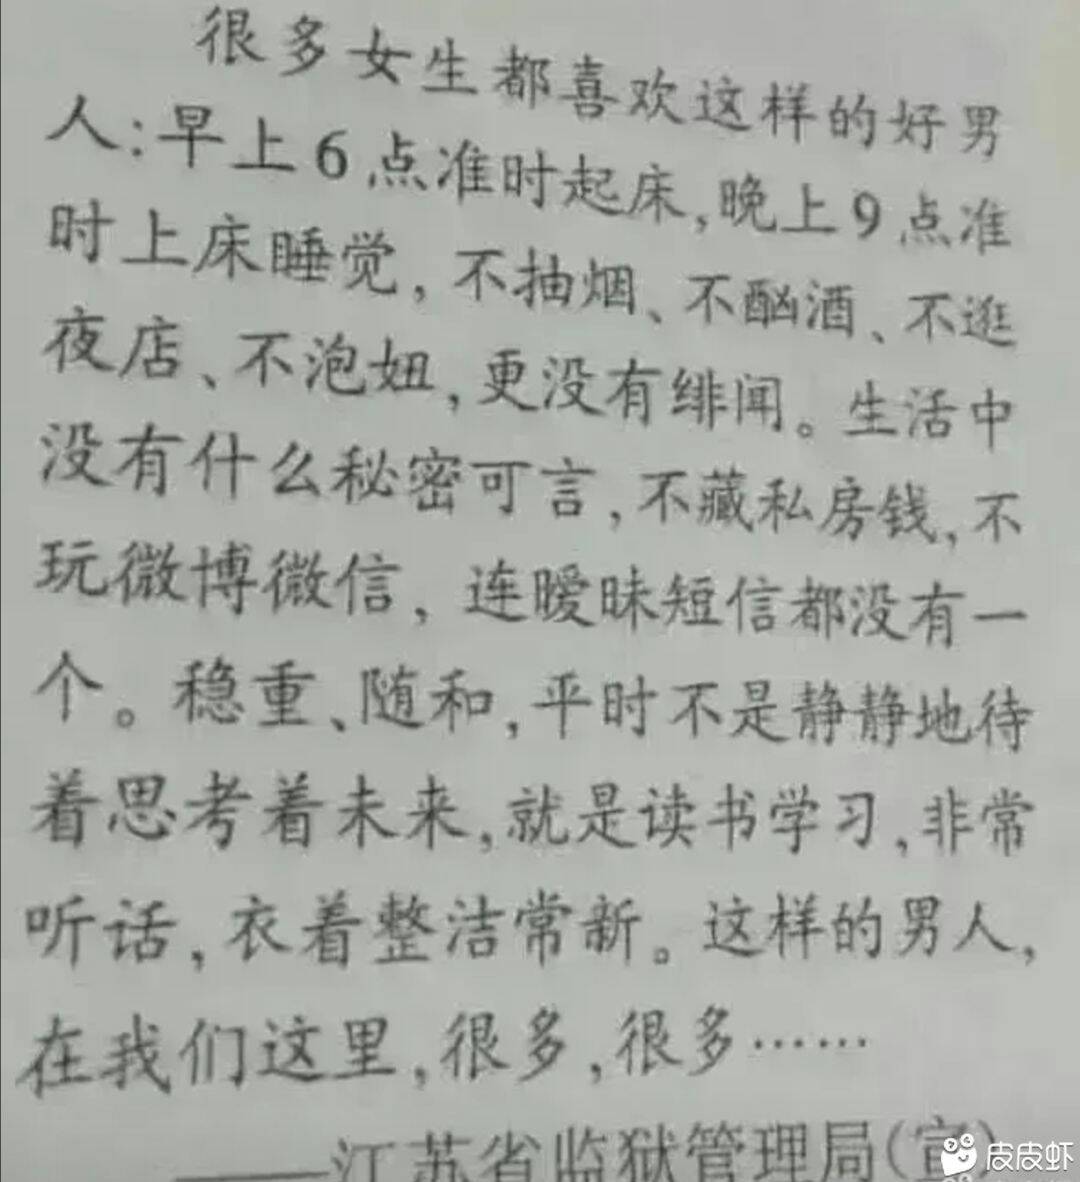 很多女生都喜欢这样的好男
人:早上6点准时起床,晚上9点准
时上床睡觉,不抽烟、不酗酒、不逛
夜店、不泡妞,更没有绯闻。生活中
没有什么秘密可言,不藏私房钱,不
玩微博微信,连暧昧短信都没有一
个。稳重、随和,平时不是静静地待
着思考着未来,就是读书学习,非常
听话,衣着整洁常新。这样的男人,
在我们这里,很多,很多……
——江苏省监狱管理局(宣)
皮皮虾